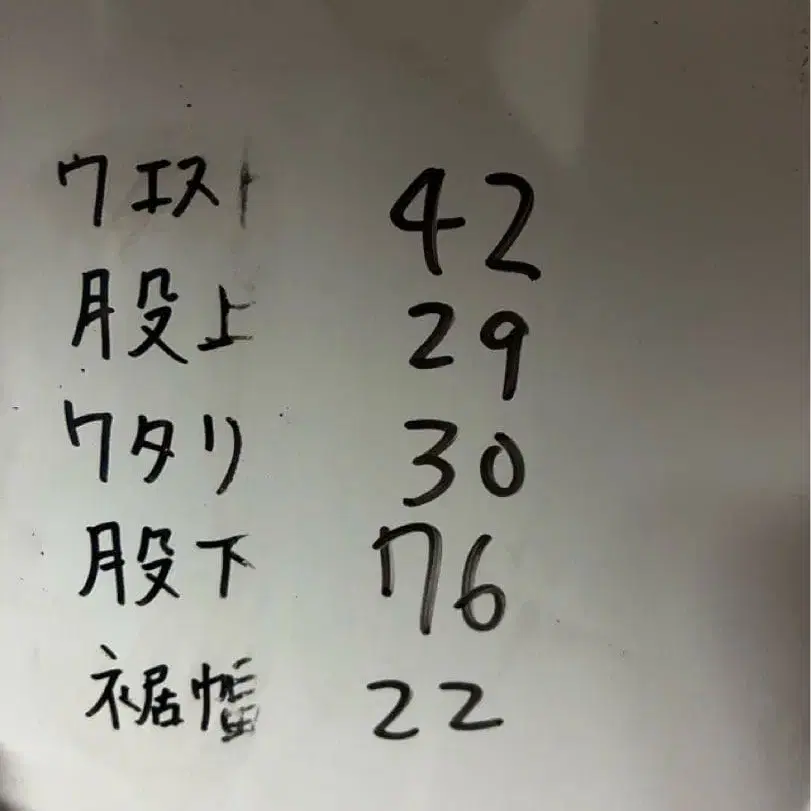 ウエスト 42
股上 29
ワタリ 30
股下 76
裾幅 22